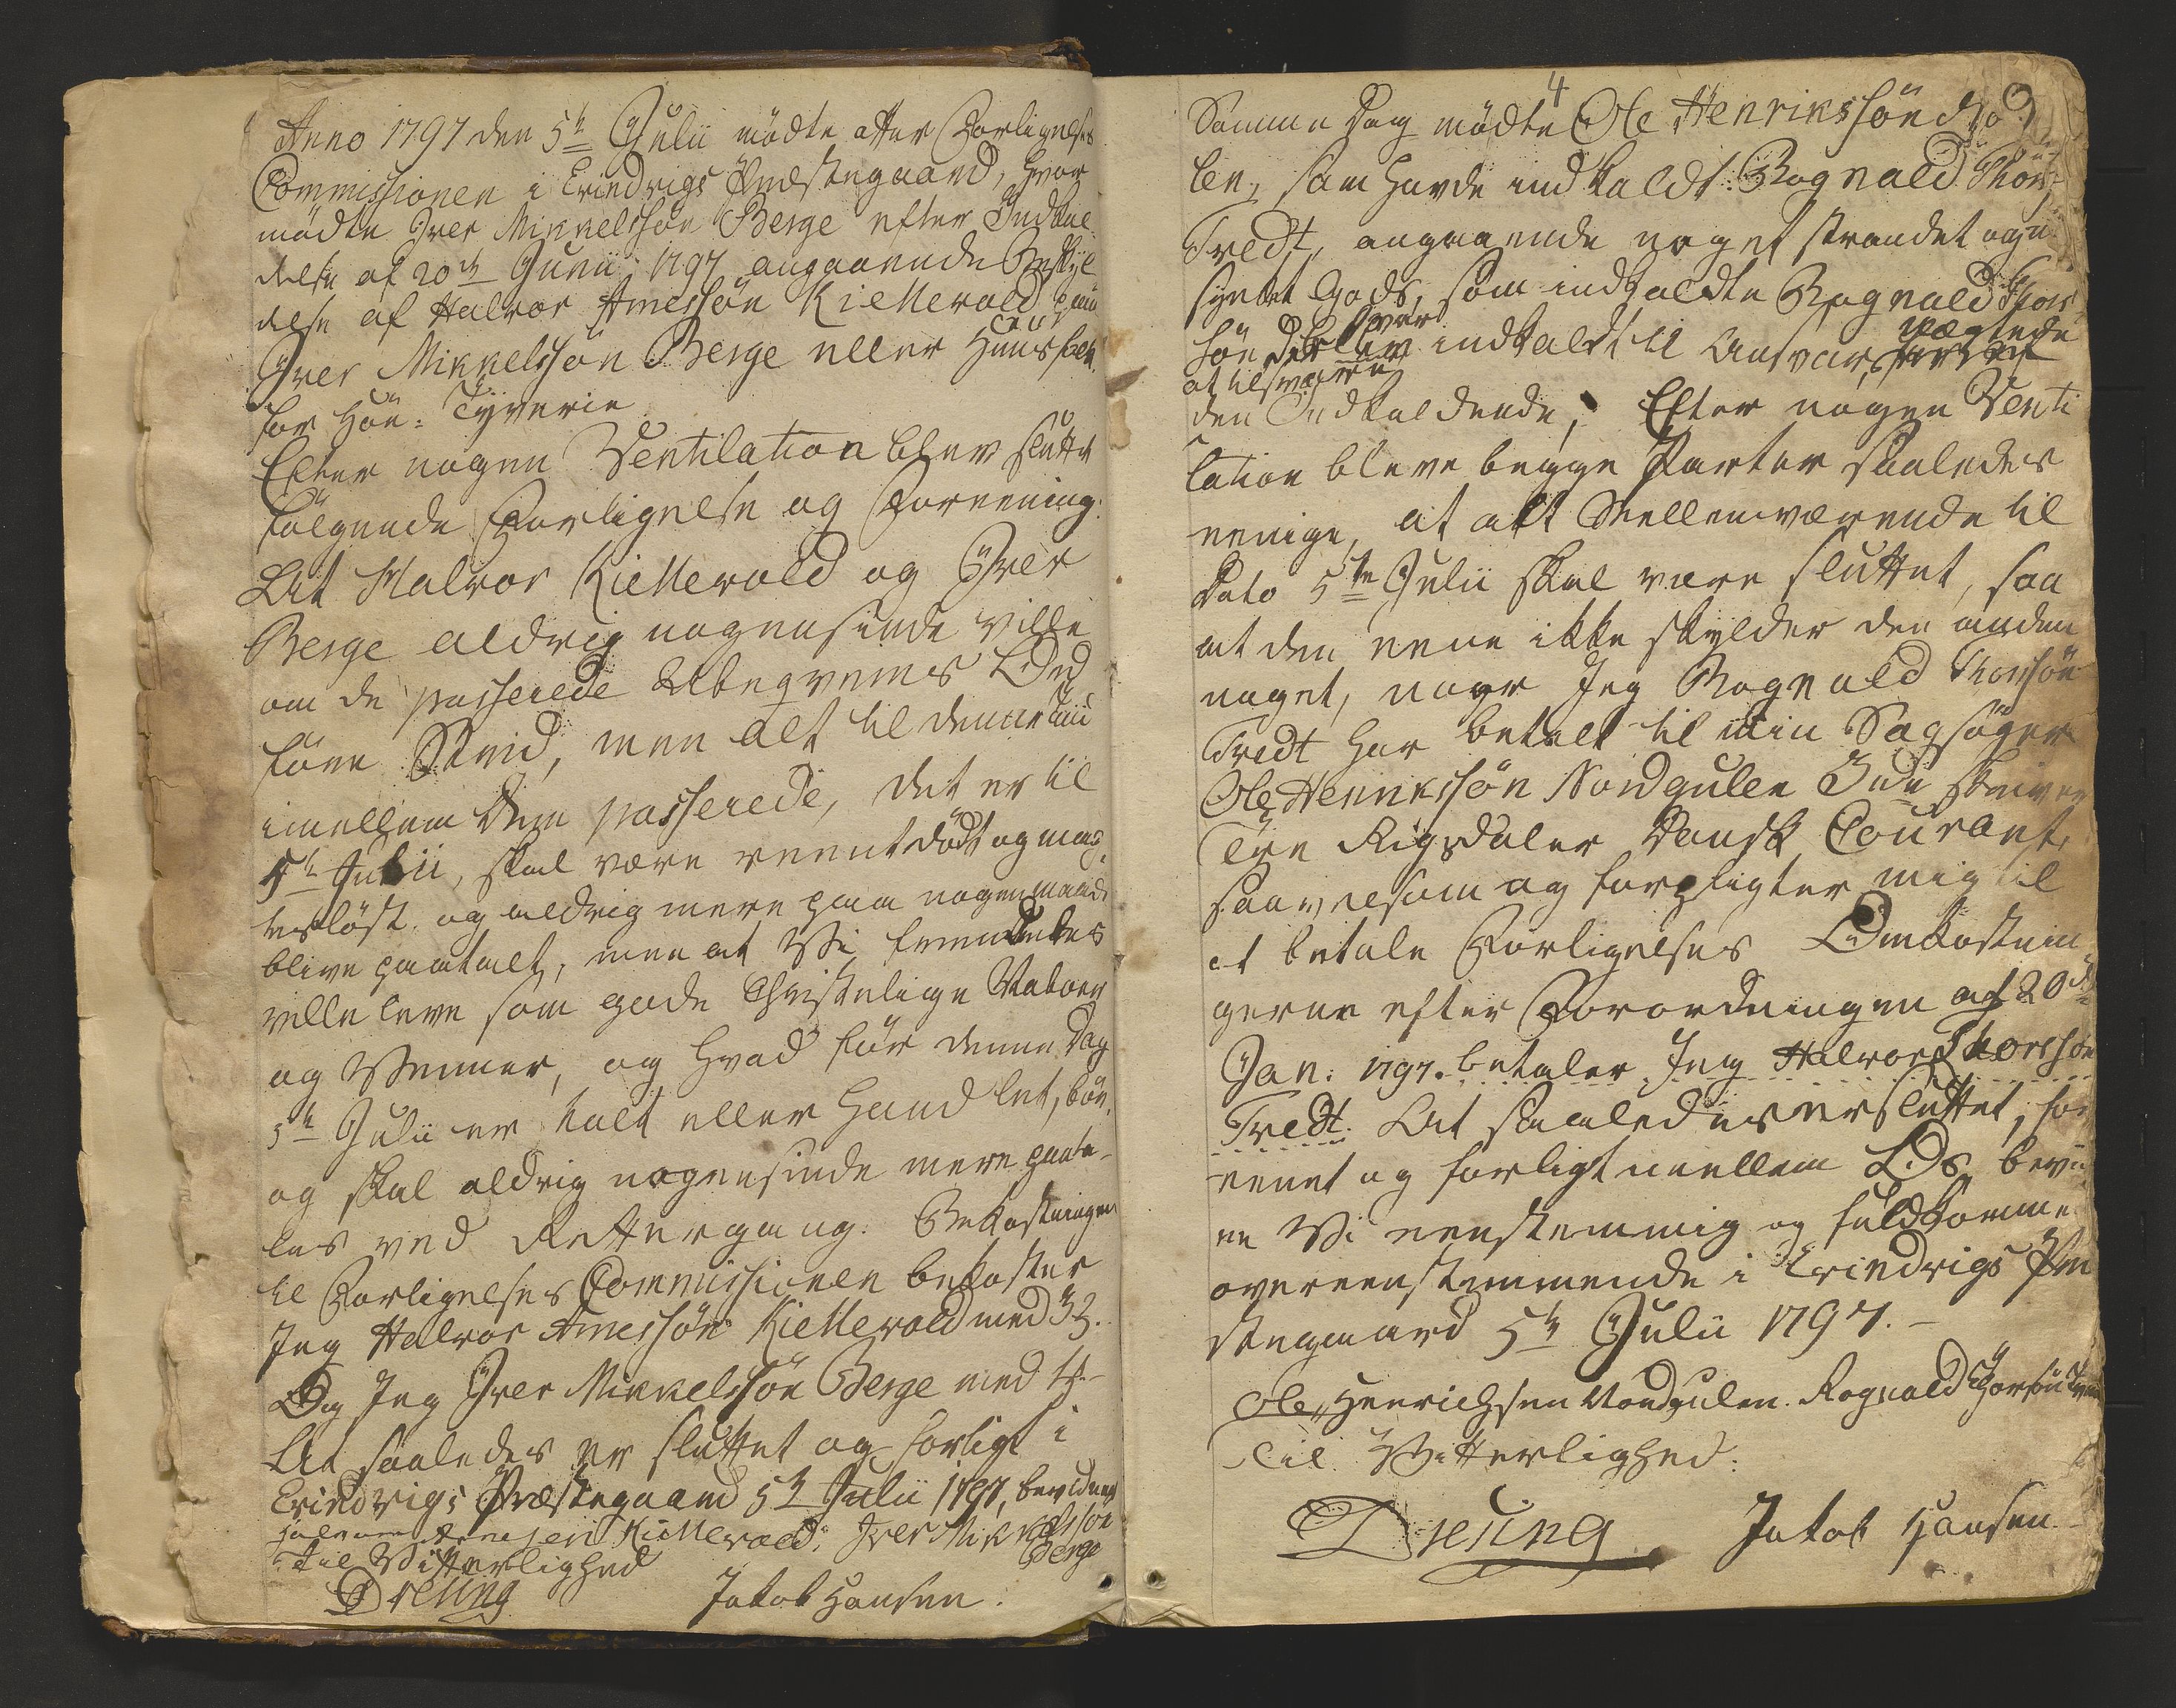 Anno 1797 den 5te Julii mödte atter Forligelses
Commissionen i Evindvigs Præstegaard, hvor
mödte Iver Mikkelssön Berge efter Indkal-
delse af 20de Junii, 1797 angaaende Beskyl
delse af Halvor Arnessön Kiellevold paa
Iver Mikkelssön Berge eller Huusfolk
for Höe-Tyverie
Efter nogen Ventilation blev sluttet
fölgende Forligelse og Foreening:
At Halvor Kiellevold og Iver
Berge aldrig nogensinde ville
om de passerede Ubeqvems Ord
före Strid, men alt til denne Tiid
imellem Dem passerede, det er til
5te Julii, skal være reent dödt og mag-
teslöst, og aldrig mere paa nogen maade
blive paatalt, men at Vi fremdeeles
ville leve som gode Christelige Naboer
og Venner, og hvad för denne Dag
5te Julii er talt eller handlet, bör
og skal aldrig nogensinde mere paata-
les ved Rettergang. Bekostningen
til Forligelses Commissionen bekoster
Jeg Halvor Arnessön Kiellevold med 3
Og Jeg Iver Mikkelssön Berge med
At saaledes er sluttet og forligt i
Evindvigs Præstegaard 5te Julii 1797, bevidner
Halvor Arnesen Kiellevold. Iver Mikkelssön
Berge
Til Vitterlighed
Dreling Jakob Hansen.
4
Samme Dag mödte Ole Henrikssön
len, som havde indkaldt Rognald Thors
Tredt, angaaende noget strandet og
Gods, som indkaldte Rognald Thors
sön var indkaldt til Ansvar, nægtede
at tilsvare
den Indkaldende; Efter nogen Venti
lation bleve begge Parter saaledes
eenige, at alt Mellemværende til
Dato 5te Julii skal være sluttet, saa
at den eene ikke skylder den anden
noget, naar Jeg Rognald Thorssön
Tredt har betalt til min Sagsöger
Ole Henrikssön Nordgulen
Rigsdaler Dansk Courant,
saavelsom og forpligter mig til
at betale Forligelses Omkostnin
gerne efter Forordningen af 20de
Jan: 1797. betaler Jeg Halvor Thorssön
Tredt. At saaledes er sluttet, for
eenet og forligt imellem Os, bevid
ne Vi eenstemmig og fuldkomme
overeenstemmende i Evindvigs Præ
stegaard 5te Julii 1797.
Ole Henrichsen Nordgulen. Rognald Thorsön Tredt
Til Vitterlighed:
Dreling Jakob Hansen